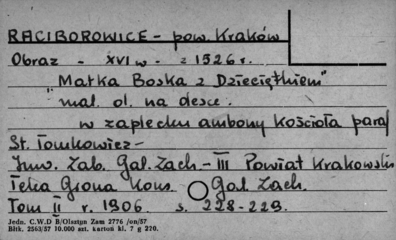 RACIBOROWICE - pow. Kraków
Obraz - XVI w. - z 1526 r.
"Matka Boska z Dzieciątkiem"
mal. ol. na desce.
w zaplecku ambony kościoła paraf
St. Tomkowicz -
Inw. Zab. Gal. Zach. - III Powiat Krakowski
Teka Grona Kons. Gal. Zach.
Tom II r. 1906. s. 228-229.
Jedn. C.W.D B/Olsztyn Zam 2776 /on/57
Błkt. 2563/57 10.000 szt. karton kl. 7 g 220.